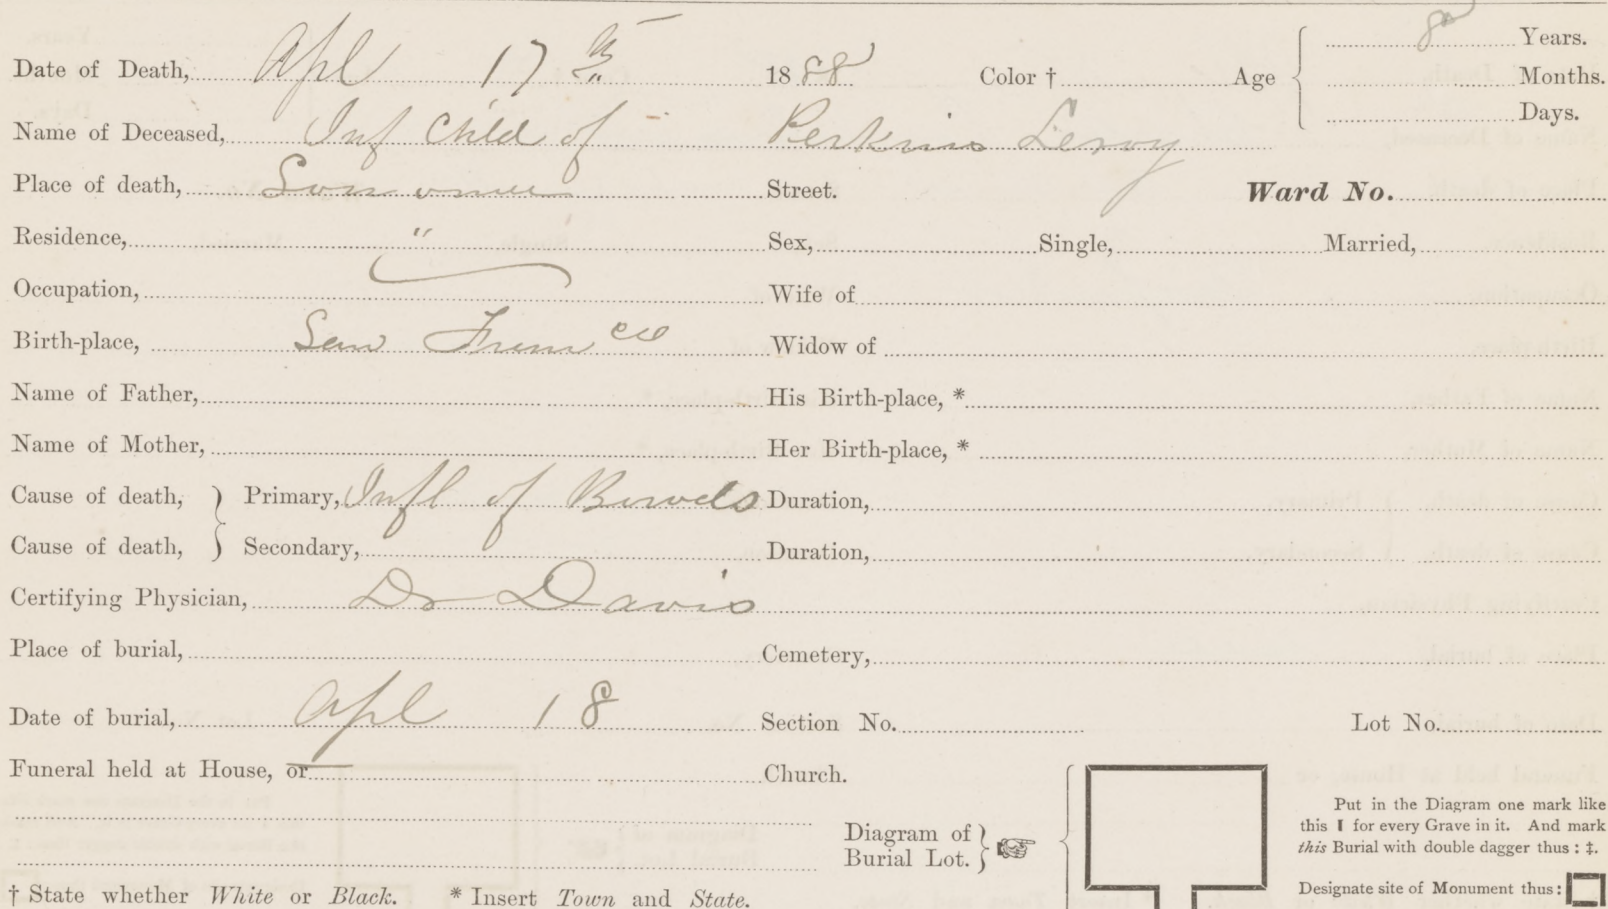 Date of Death, Apl 17th 1888 Color † Age 8 Years.
Months.
Days.
Name of Deceased, Inf Child of Perkins Leroy
Place of death, Sonoma Street. Ward No.
Residence, " Sex, Single, Married,
Occupation, Wife of
Birth-place, San Francco Widow of
Name of Father, His Birth-place, *
Name of Mother, Her Birth-place, *
Cause of death, Primary, Infl of Bowels Duration,
Cause of death, Secondary, Duration,
Certifying Physician, Dr Davis
Place of burial, Cemetery,
Date of burial, Apl 18 Section No. Lot No.
Funeral held at House, or Church.
Diagram of
Burial Lot.
Put in the Diagram one mark like
this I for every Grave in it. And mark
this Burial with double dagger thus : ‡.
Designate site of Monument thus:
† State whether White or Black. * Insert Town and State.